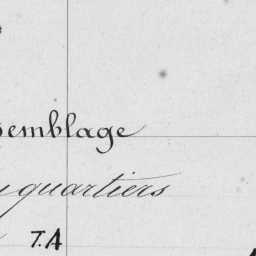 semblage
quartiers
T.A